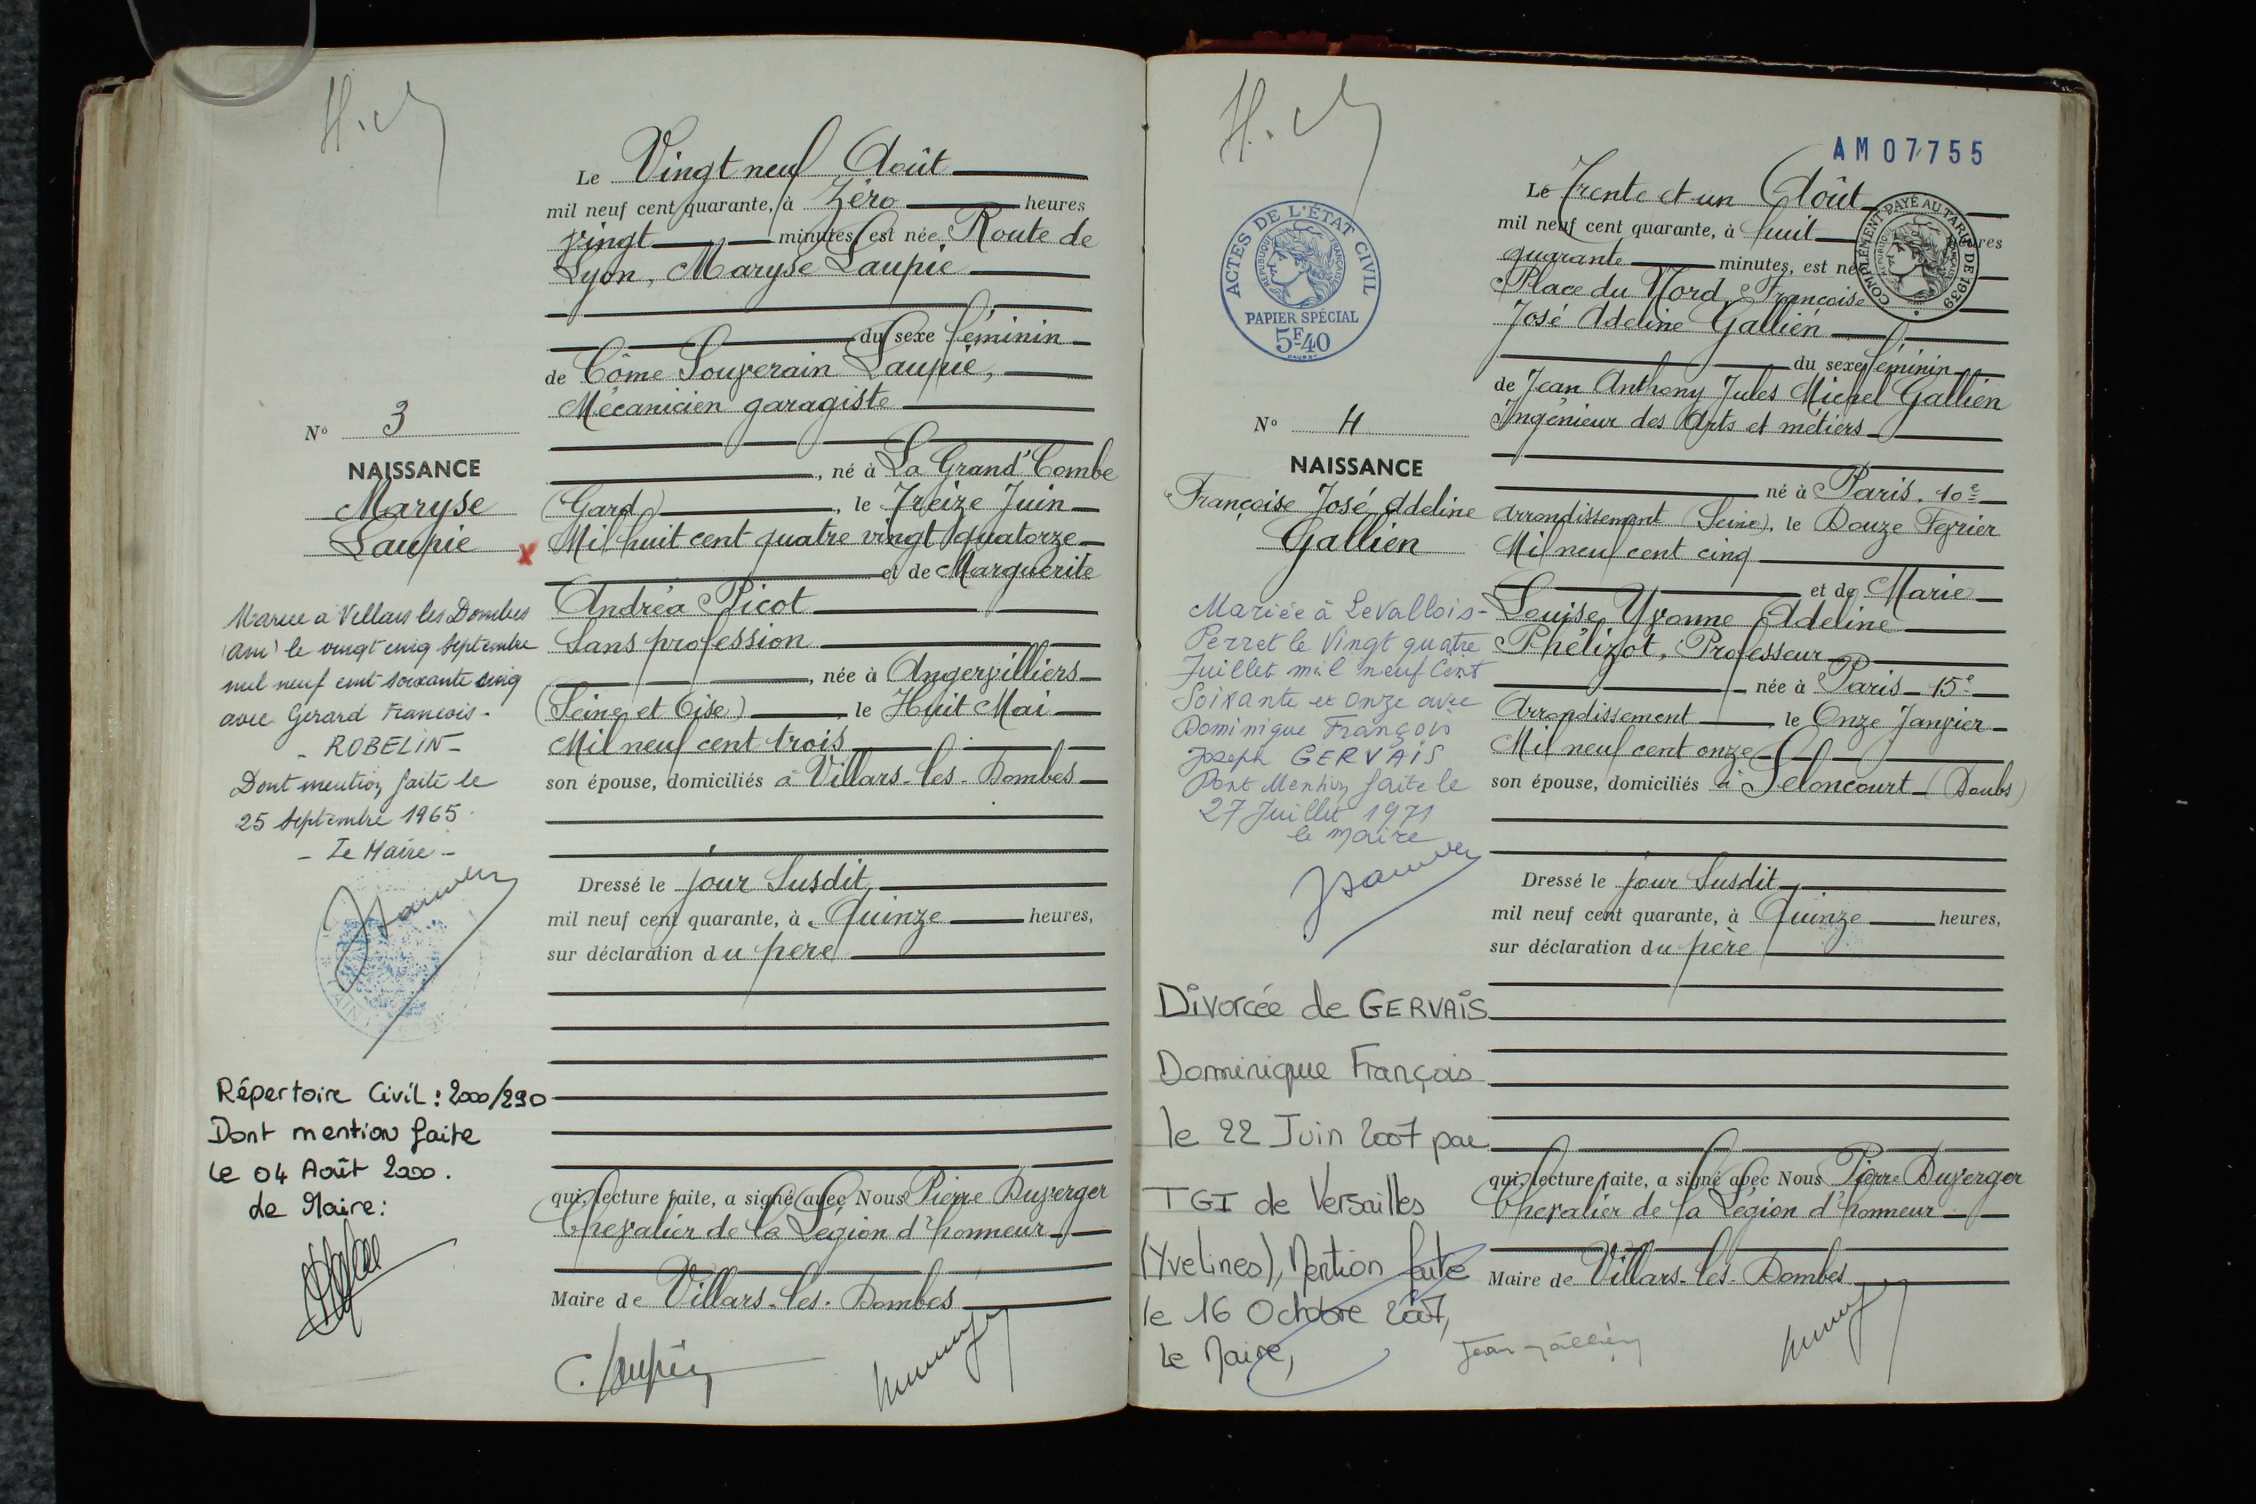 Le Vingt neuf Août
mil neuf cent quarante, à Zéro heures
vingt minutes, est née, Route de
Lyon, Maryse Laupie
du sexe féminin
de Côme Souverain Laupie,
Mécanicien garagiste
, né à La Grand'Combe
(Gard), le Treize Juin
Mil huit cent quatre vingt quatorze
et de Marguerite
Andréa Picot
Sans profession
, née à Angervilliers
(Seine et Oise) le Huit Mai
Mil neuf cent trois
son épouse, domiciliés à Villars-les-Dombes
Dressé le jour Susdit,
mil neuf cent quarante, à Quinze heures,
sur déclaration du père
qui, lecture faite, a signé avec Nous Pierre Duverger
Chevalier de la Légion d'honneur
Maire de Villars-les-Dombes
C. Laupie
N° 3
NAISSANCE
Maryse
Laupie
x
Mariée à Villars les Dombes
(Ain) le vingt cinq septembre
mil neuf cent soixante cinq
avec Gérard François
- ROBELIN -
Dont mention faite le
25 septembre 1965
- Le Maire -
Répertoire Civil : 2000/290
Dont mention faite
le 04 Août 2000.
Le Maire :
AM07755
Le Trente et un Août
mil neuf cent quarante, à huit heures
quarante minutes, est née
Place du Nord, Françoise
José Adeline Gallien
du sexe féminin
de Jean Anthony Jules Michel Gallien
Ingénieur des Arts et métiers
né à Paris. 10e
Arrondissement (Seine), le Douze Fevrier
Mil neuf cent cinq
et de Marie
Louise Yvonne Adeline
Phélizot, Professeur
née à Paris - 15e
Arrondissement le Onze Janvier
Mil neuf cent onze
son épouse, domiciliés à Seloncourt (Doubs)
Dressé le jour Susdit
mil neuf cent quarante, à Quinze heures,
sur déclaration du père
qui, lecture faite, a signé avec Nous Pierre Duverger
Chevalier de la Légion d'honneur
Maire de Villars-les-Dombes
Jean Gallien
COMPLÉMENT PAYÉ AU TARIF DE 1939
RÉPUBLIQUE FRANÇAISE
ACTES DE L'ÉTAT CIVIL
RÉPUBLIQUE FRANÇAISE
PAPIER SPÉCIAL
5F40
N° 4
NAISSANCE
Françoise José Adeline
Gallien
Mariée à Levallois-
Perret le Vingt quatre
Juillet mil neuf Cent
Soixante et onze avec
Dominique François
Joseph GERVAIS
Dont Mention faite le
27 Juillet 1971
le Maire
Divorcée de GERVAIS
Dominique François
le 22 Juin 2007 par
TGI de Versailles
(Yvelines), Mention faite
le 16 Octobre 2007,
Le Maire,